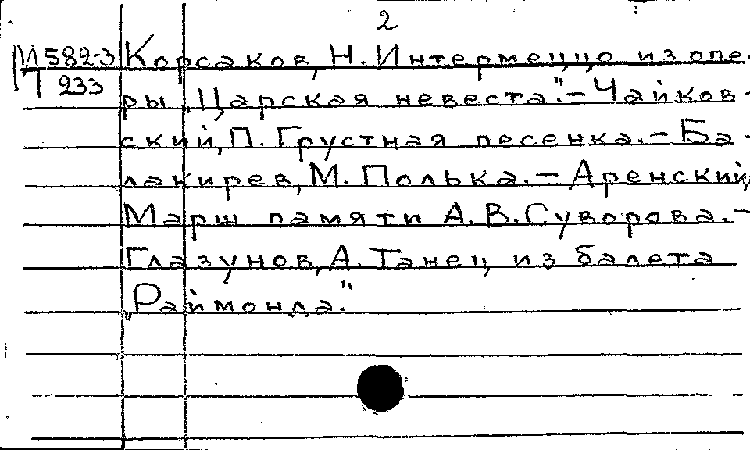 2
М582-3 Корсаков, Н. Интермеццо из опе-
Т 933
ры „Царская невеста". – Чайков-
ский, П. Грустная песенка. – Ба-
лакирев, М. Полька. – Аренский,
Марш памяти А. В. Суворова. –
Глазунов, А. Танец из балета
„Раймонда."